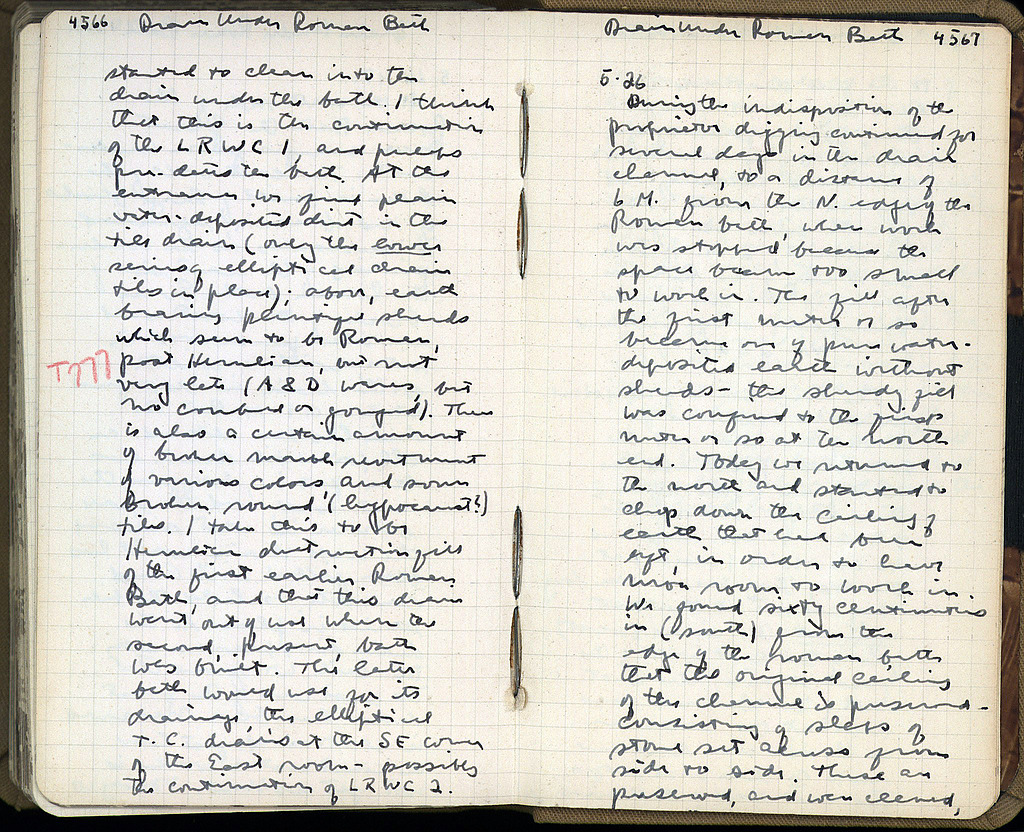 4566 Drain Under Roman Bath
started to clean into the
drain under the bath. I think
that this is the continuation
of the LRWC 1 and perhaps
pre-dates the bath. At the
entrance we find plain
water-deposited dirt in the
tile drain (only the lower
series of elliptical drain
tiles in place); above, earth
bearing plentiful sherds
which seem to be Roman,
T777 post Herulian, but not
very late (A & D wares, but
no combed or gouged). There
is also a certain amount
of broken marble revetment
of various colors and some
broken round (hypocaust?)
tiles. I take this to be
Herulian destruction fill
of the first earlier Roman
Bath, and that this drain
went out of use when the
second, present, bath
was built. The later
bath would use for its
drainage, the elliptical
T.C. drains at the SE corner
of the East room - possibly
the continuation of LRWC 2.
Drain Under Roman Bath 4567
5.26
During the indisposition of the
proprietor digging continued for
several days in the drain
channel, to a distance of
6 M. from the N. edge of the
Roman bath, when work
was stopped because the
space became too small
to work in. The fill after
the first meter or so
became one of pure water-
deposited earth without
sherds - the sherdy fill
was confined to the first
meter or so at the north
end. Today we returned to
the north and started to
chop down the ceiling of
earth that had been
left, in order to have
more room to work in.
We found sixty centimeters
in (south) from the
edge of the roman bath
that the original ceiling
of the channel is preserved -
consisting of slabs of
stone set across from
side to side. These are
preserved, and were cleaned,